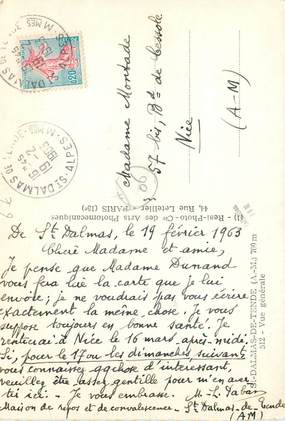 Madame Montade
57 bis, Bd de Cessole
Nice
(A-M)
(1) Rest-Photo - Cie des Arts Photomécaniques
44, Rue Letellier - PARIS (15e)
ST-DALMAS-DE-TENDE (A.-M.) 700 m
512 - Vue générale
De St Dalmas, le 19 février 1963
Chère Madame et amie,
Je pense que Madame Durand
vous fera lire la carte que je lui
envoie; je ne voudrais pas vous écrire
exactement la même chose. Je vous
suppose toujours en bonne santé. Je
rentrerai à Nice le 16 mars après-midi.
Si, pour le 17 ou les dimanches suivants
vous connaissez qqchose d'intéressant,
veuillez être assez gentille pour m'en aver-
tir ici. - Je vous embrasse. M. L.
Maison de repos et de convalescence - St-Dalmas-de-Tende
(AM)
0,20